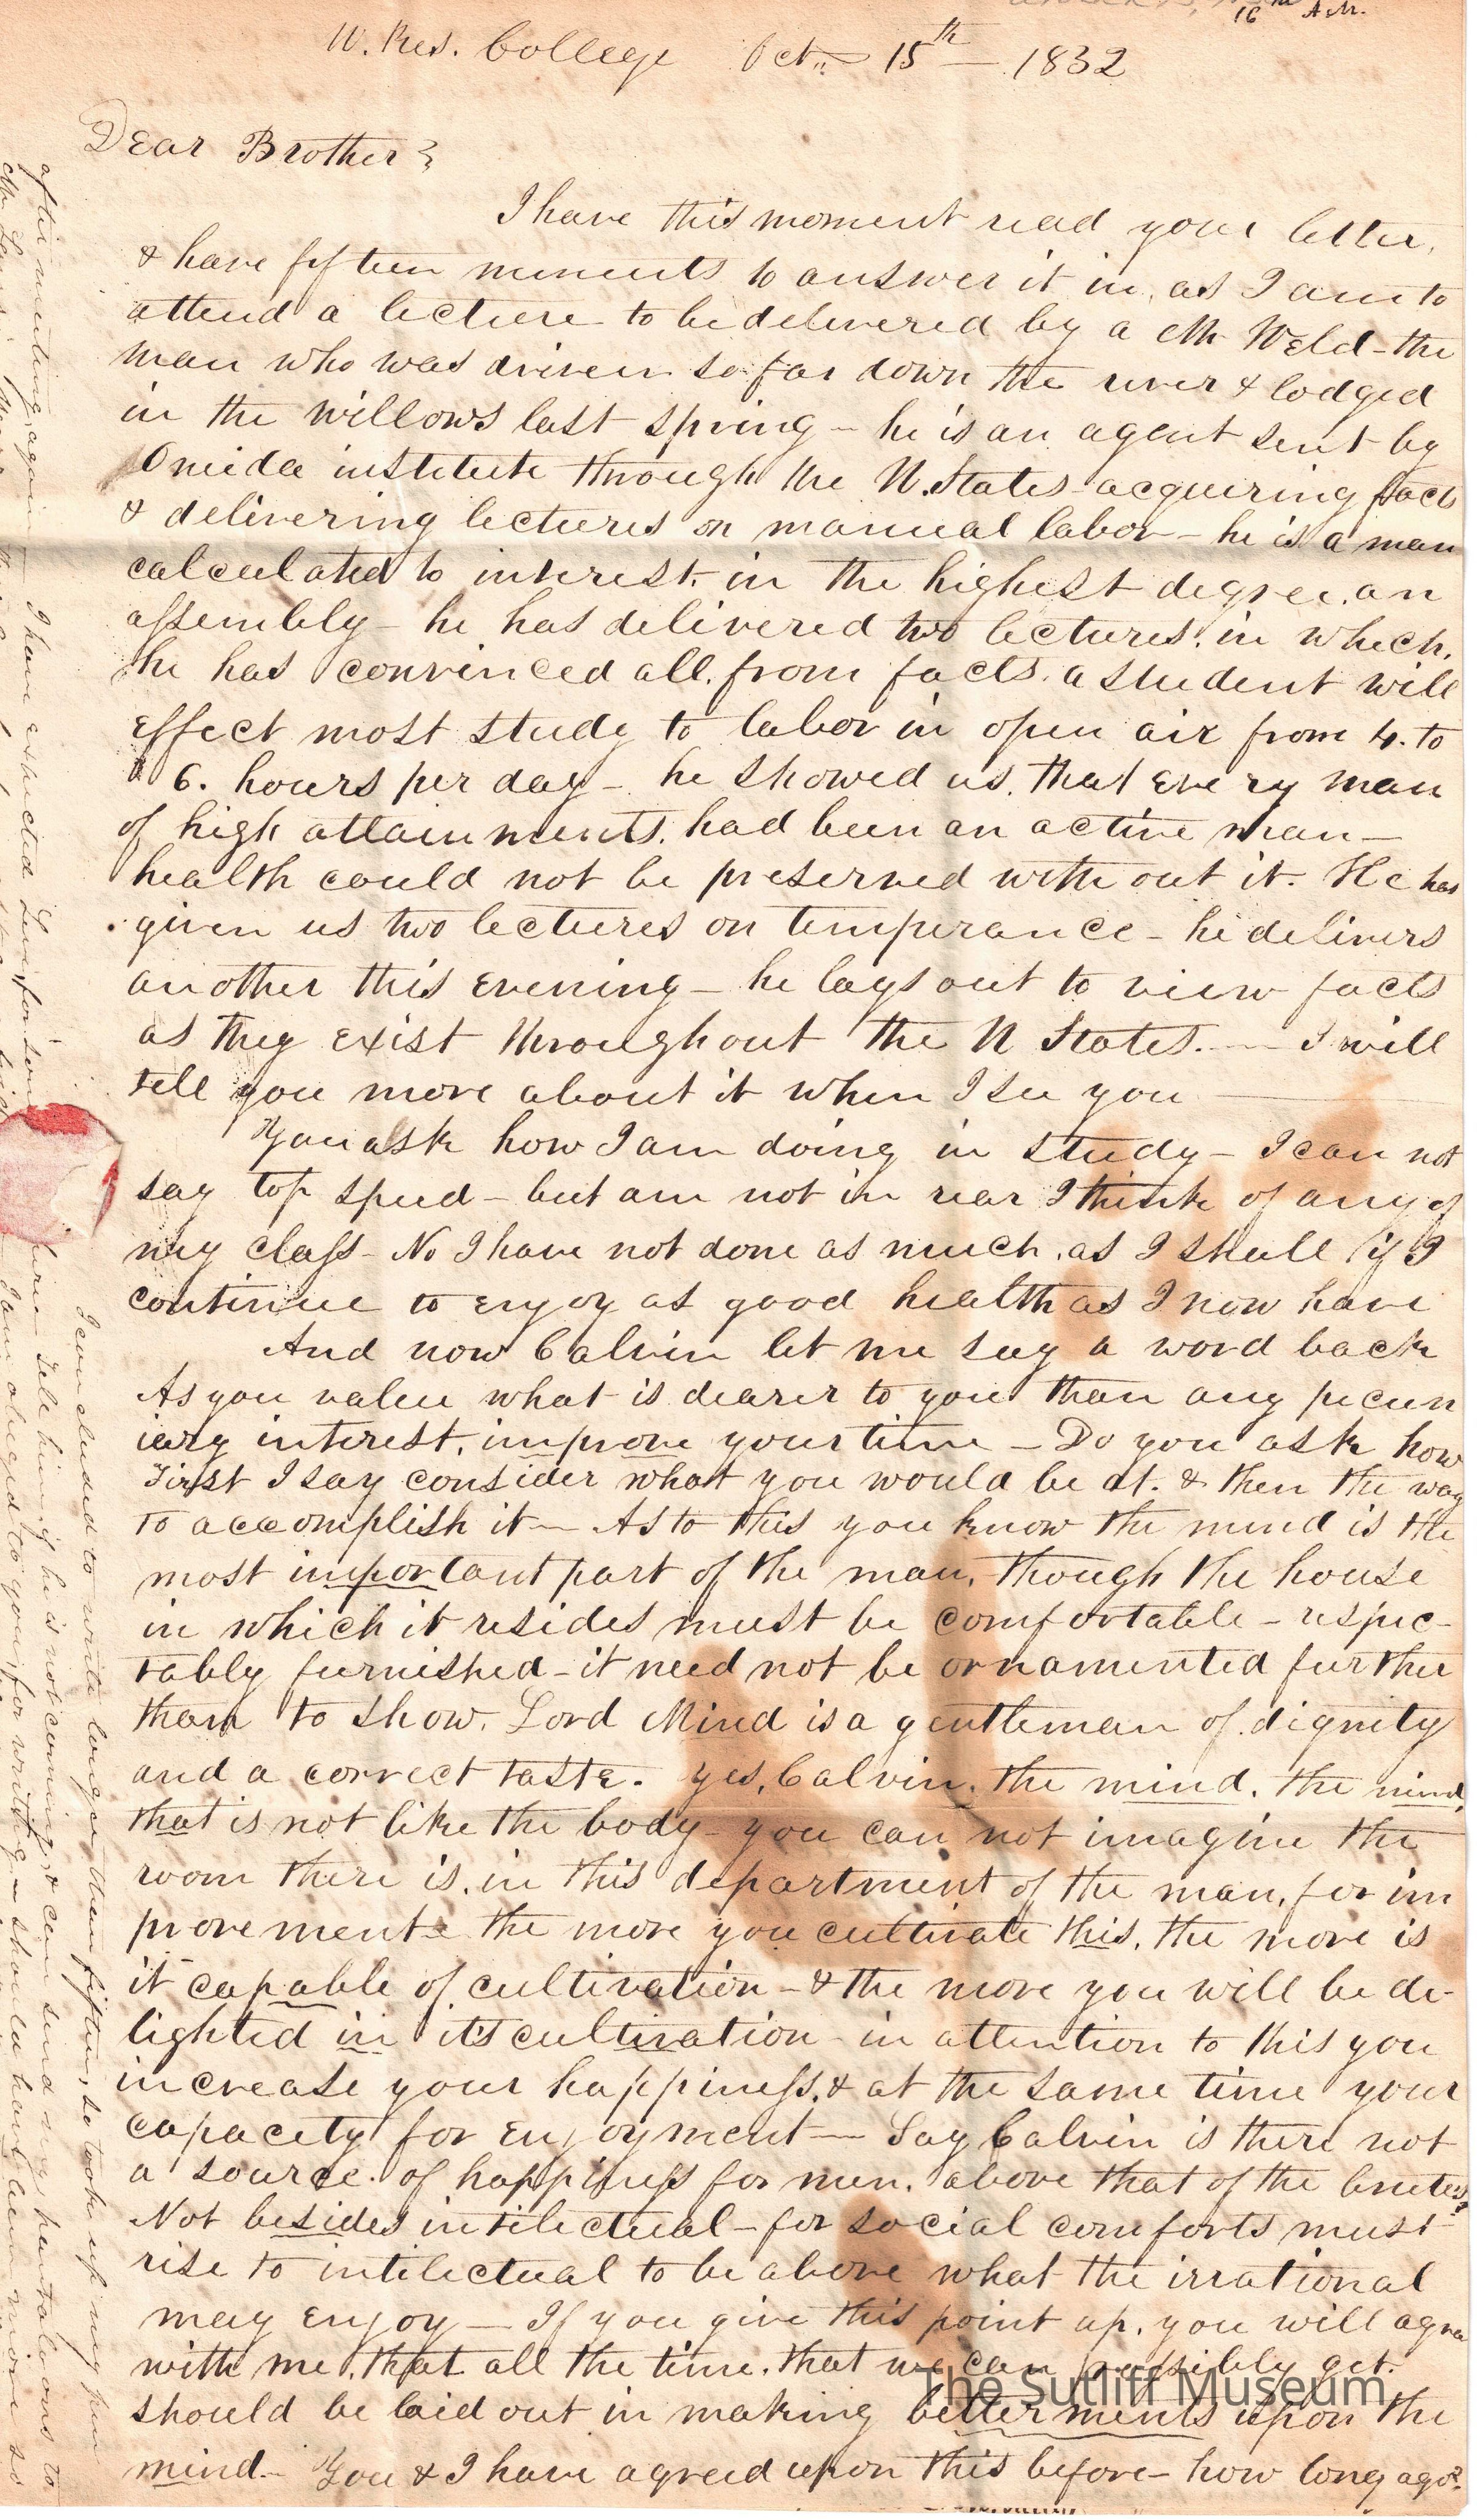 16 A.M.
W. Res. College Oct. 15th 1832
Dear Brother
I have this moment read your letter,
& have fifteen minuets to answer it in, as I am to
attend a lecture to be delivered by a Mr Weld - the
man who was driven so far down the river & lodged
in the willows last spring - he is an agent sent by
Oneida institute through the U. States acquiring facts
& delivering lectures on manual labor - he is a man
calculated to interest in the highest degree an
assembly - he has delivered two lectures in which,
he has convinced all from facts, a student will
Effect most study to labor in open air from 4. to
6. hours per day - he showed us, that Every man
of high attainments, had been an active man -
health could not be preserved with out it. He has
given us two lectures on temperance - he delivers
another this Evening - he lays out to view facts
as they Exist throughout the U States. - I will
tell you more about it when I see you
You ask how I am doing in study - I can not
say top speed - but am not in rear I think of any of
my class - No I have not done as much, as I shall if I
continue to enjoy as good health as I now have
And now Calvin let me say a word back
As you value what is dearer to you than any pecun
iary interest, improve your time - Do you ask how
First I say consider what you would be at. & then the way
to accomplish it - As to this you know the mind is the
most important part of the man, though the house
in which it resides must be comfortable - respec-
tably furnished - it need not be ornamented further
than to show, Lord Mind is a gentleman of dignity
and a correct taste. Yes, Calvin, the mind, the mind,
that is not like the body - you can not imagine the
room there is, in this department of the man, for im
provement - the more you cultivate this, the more is
it capable of cultivation - & the more you will be de-
lighted in its cultivation - in attention to this you
increase your happiness, & at the same time your
capacity for Enjoyment - Say Calvin is there not
a source of happiness for men, above that of the brutes?
Not besides intilectual - for social comforts must
rise to intilectual to be above what the irrational
may enjoy - If you give this point up, you will agree
with me, that all the time, that we can possibly get.
should be laid out in making betterments upon the
mind - You & I have agreed upon this before - how long ago?
I concluded to write longer than fifteen, so took up my pen
after meeting again I have expected Levi for some
Tell him if he is not coming, & can send my pantaloons to
I am obliged to you for writing - should have been more so
The Sutliff Museum